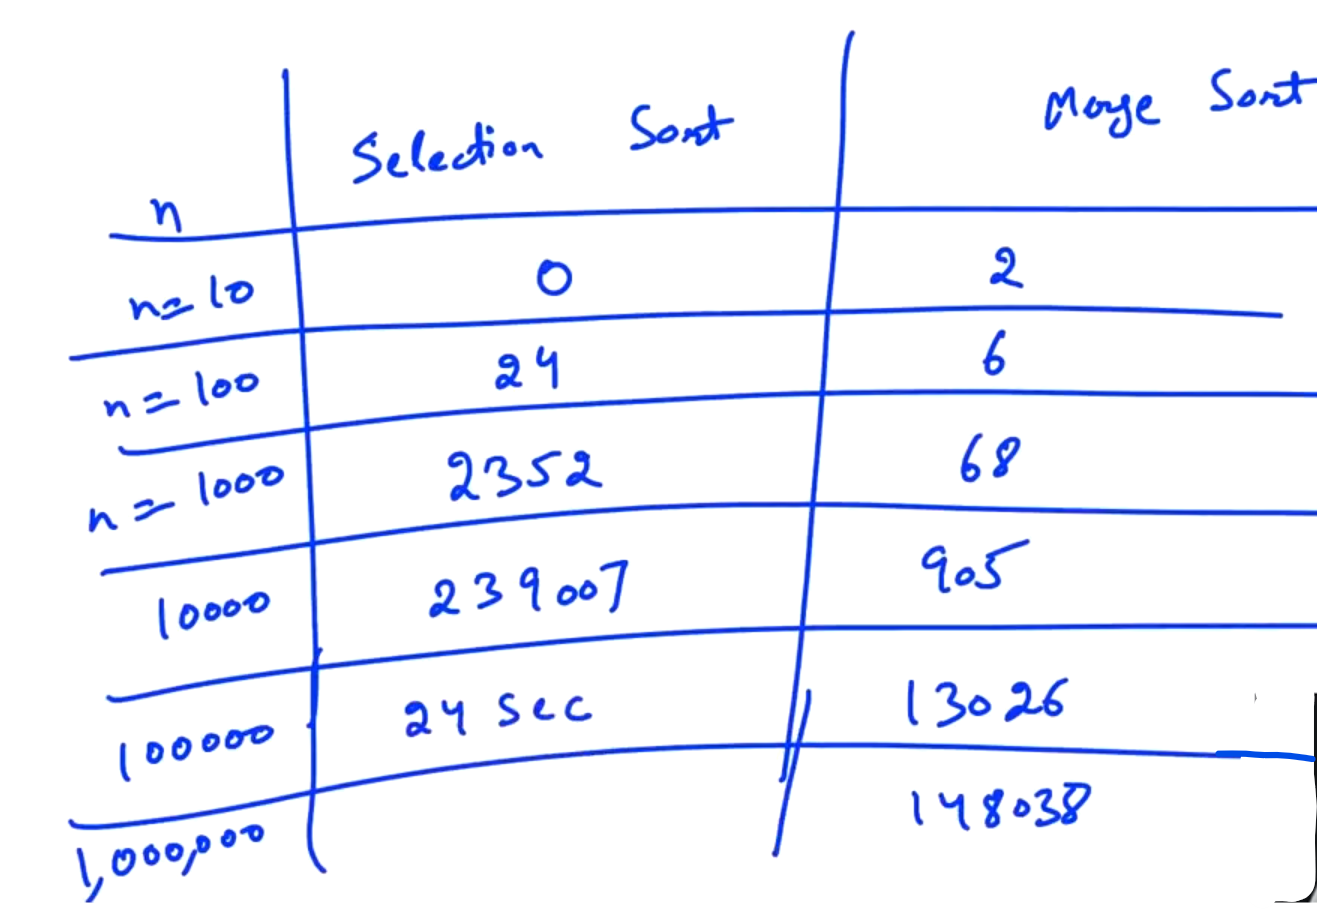 n Selection Sort Merge Sort
n=10 0 2
n=100 24 6
n=1000 2352 68
10000 239007 905
100000 24 sec 13026
1,000,000 148038